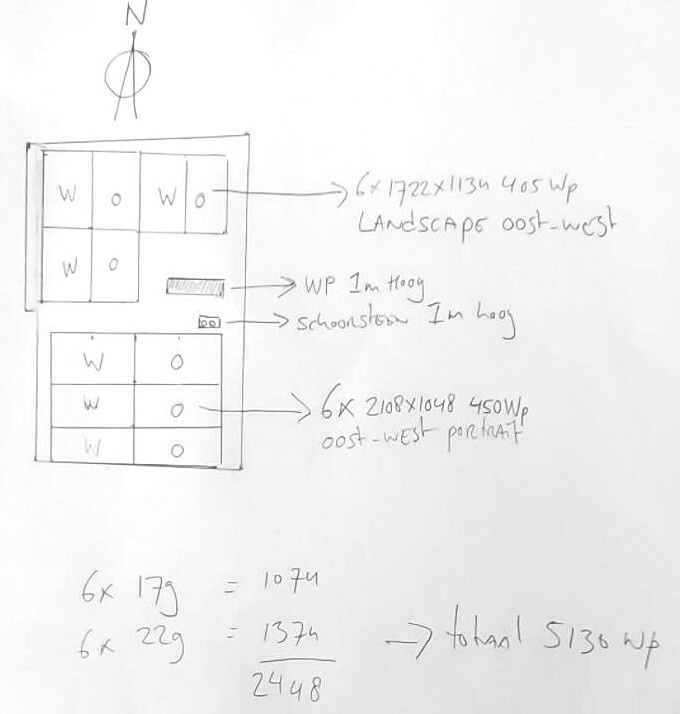 N
W O W O
6x 1722x1134 405 Wp
LANDSCAPE OOST-WEST
W O
WP 1m Hoog
Schoorsteen 1m hoog
W O
W O
6x 2108x1048 450Wp
OOST-WEST portrait
W O
6x 179 = 1074
6x 229 = 1374
2448
totaal 5130 Wp